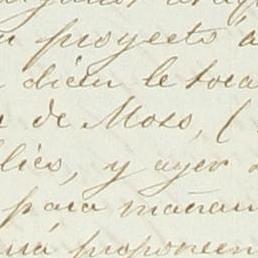 proyecto á
dicen le toca
de Moso, (
lies, y ayer
para mañan
proponen